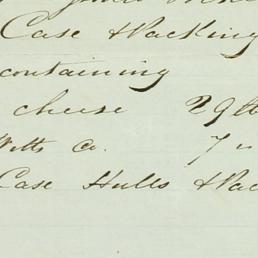 Case & Packing
containing
cheese 29 lb
Witts Co. 7 "
Case Hulls & Pac